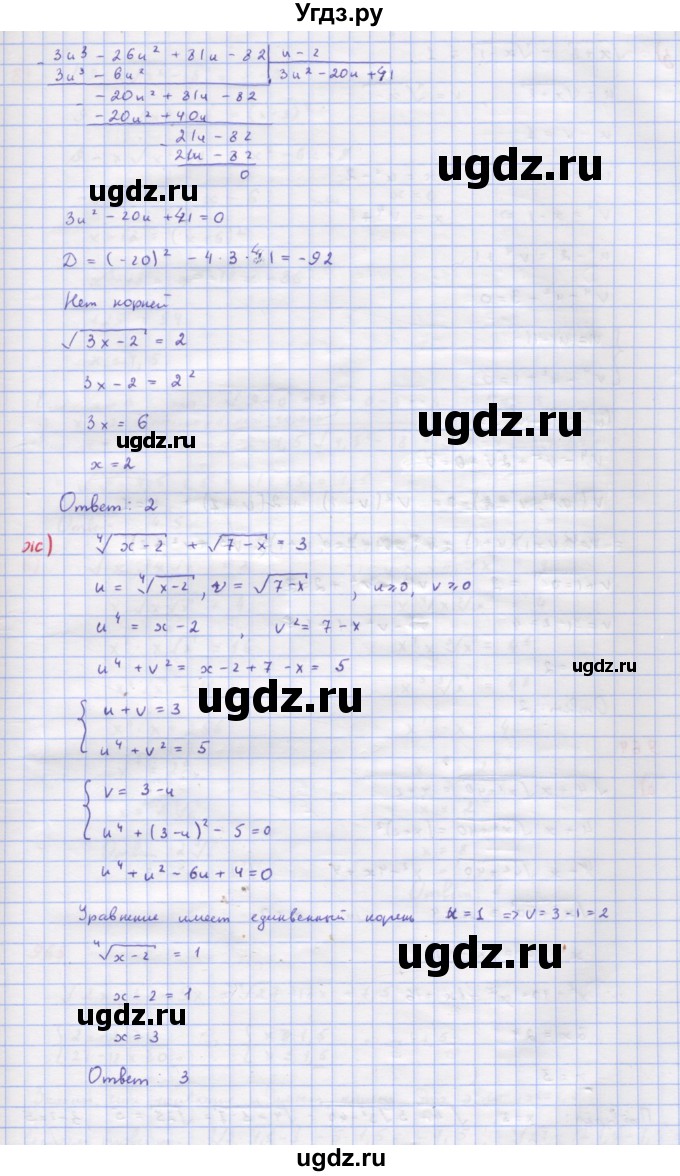 Угдз.ру
3u³ - 26u² + 81u - 82 | u - 2
3u³ - 6u² | 3u² - 20u + 41
- 20u² + 81u - 82
- 20u² + 40u
ugdz.ru
21u - 82
21u - 82
0
ugdz.ru
3u² - 20u + 41 = 0
D = (-20)² - 4·3·41 = -92
Нет корней
√(3x-2) = 2
3x - 2 = 2²
ugdz.ru
3x = 6
ugdz.ru
x = 2
Ответ: 2
ж) ⁴√(x-2) + √(7-x) = 3
u = ⁴√(x-2), v = √(7-x), u≥0, v≥0
u⁴ = x - 2, v² = 7 - x
u⁴ + v² = x - 2 + 7 - x = 5
ugdz.ru
ugdz.ru
{ u + v = 3
u⁴ + v² = 5
{ v = 3 - u
u⁴ + (3-u)² - 5 = 0
u⁴ + u² - 6u + 4 = 0
Уравнение имеет единвенный корень u = 1 => v = 3 - 1 = 2
⁴√(x-2) = 1
ugdz.ru
x - 2 = 1
ugdz.ru
x = 3
Ответ: 3
ugdz.ru